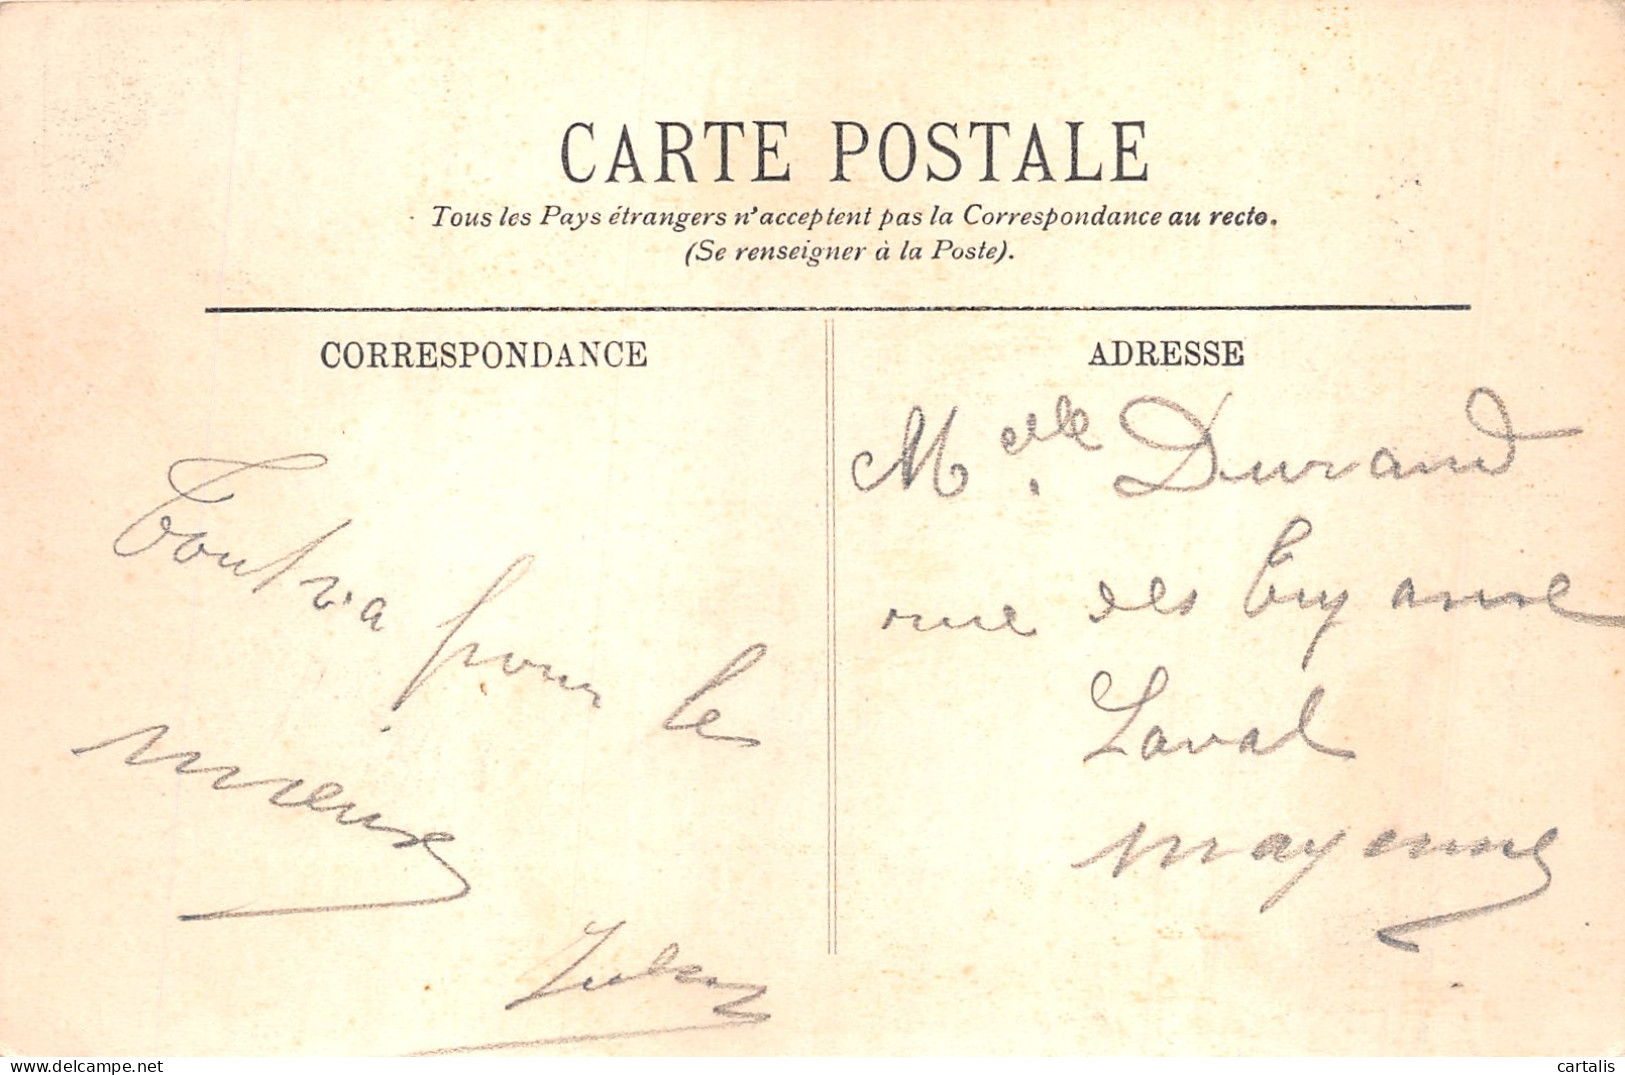 CARTE POSTALE
Tous les Pays étrangers n'acceptent pas la Correspondance au recto.
(Se renseigner à la Poste).
CORRESPONDANCE
Tout va pour le
mieux
Jules
ADRESSE
Melle. Durand
rue des
Laval
Mayenne
cartalis